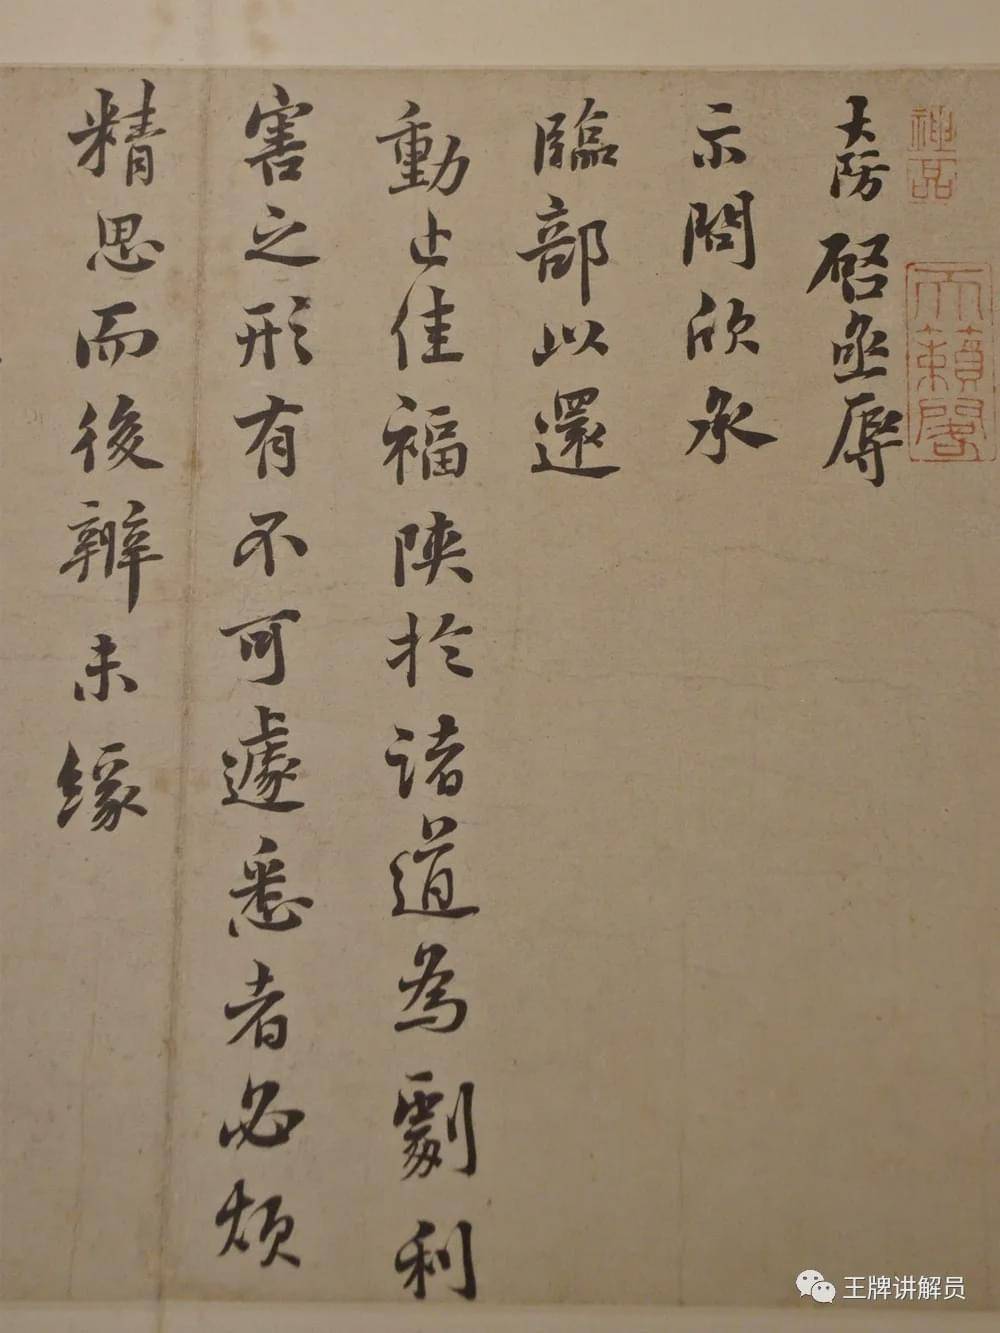 神品
天籟閣
大防啓亟辱
示問欣承
臨部以還
動止佳福陝於諸道為劇利
害之形有不可遽悉者必煩
精思而後辦未緣
王牌讲解员